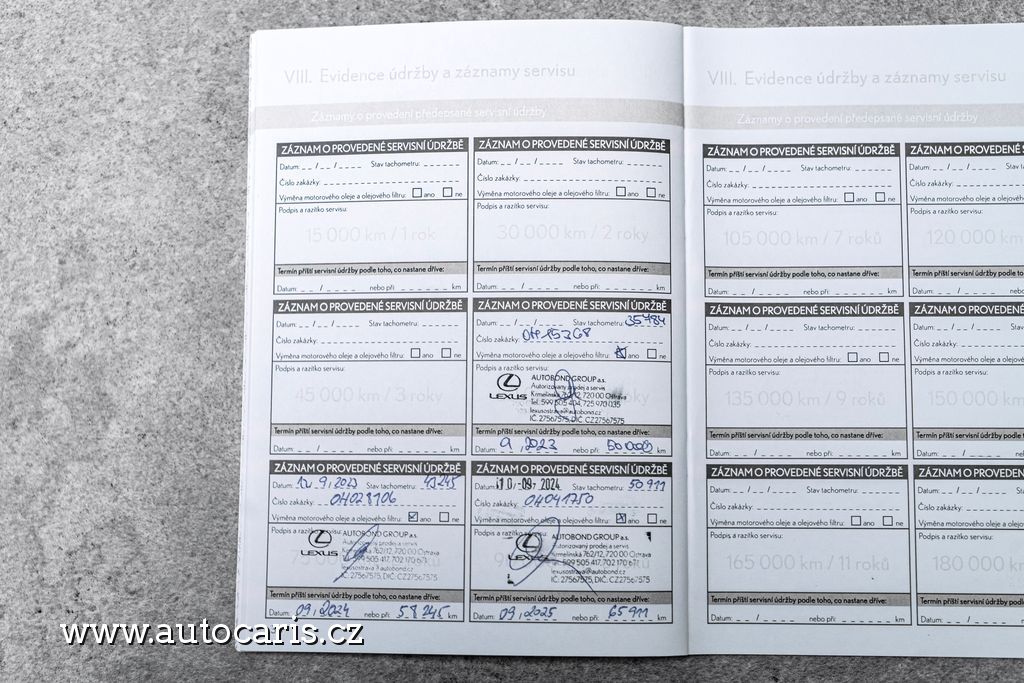 VIII. Evidence údržby a záznamy servisu
Záznamy o provedení předepsané servisní údržby
ZÁZNAM O PROVEDENÉ SERVISNÍ ÚDRŽBĚ
Datum: _ _ / _ _ / _ _ _ _ Stav tachometru: _ _ _ _ _ _
Číslo zakázky:
Výměna motorového oleje a olejového filtru: ano ne
Podpis a razítko servisu:
15 000 km / 1 rok
Termín příští servisní údržby podle toho, co nastane dříve:
Datum: _ _ / _ _ / _ _ _ _ nebo při: _ _ _ _ _ _ km
ZÁZNAM O PROVEDENÉ SERVISNÍ ÚDRŽBĚ
Datum: _ _ / _ _ / _ _ _ _ Stav tachometru: _ _ _ _ _ _
Číslo zakázky:
Výměna motorového oleje a olejového filtru: ano ne
Podpis a razítko servisu:
30 000 km / 2 roky
Termín příští servisní údržby podle toho, co nastane dříve:
Datum: _ _ / _ _ / _ _ _ _ nebo při: _ _ _ _ _ _ km
ZÁZNAM O PROVEDENÉ SERVISNÍ ÚDRŽBĚ
Datum: _ _ / _ _ / _ _ _ _ Stav tachometru: _ _ _ _ _ _
Číslo zakázky:
Výměna motorového oleje a olejového filtru: ano ne
Podpis a razítko servisu:
45 000 km / 3 roky
Termín příští servisní údržby podle toho, co nastane dříve:
Datum: _ _ / _ _ / _ _ _ _ nebo při: _ _ _ _ _ _ km
ZÁZNAM O PROVEDENÉ SERVISNÍ ÚDRŽBĚ
Datum: _ _ / _ _ / _ _ _ _ Stav tachometru: 35784
Číslo zakázky:
Výměna motorového oleje a olejového filtru: ano ne
Podpis a razítko servisu:
LEXUS
AUTOBOND GROUP a.s.
Autorizovaný prodej a servis
Krmelínská 762/12, 720 00 Ostrava
Tel. 599 505 404, 725 970 035
lexusostrava@autobond.cz
IČ: 27567575, DIČ: CZ27567575
Termín příští servisní údržby podle toho, co nastane dříve:
Datum: 9, 2023 nebo při: 50000 km
ZÁZNAM O PROVEDENÉ SERVISNÍ ÚDRŽBĚ
Datum: 9. 2023 Stav tachometru: 43245
Číslo zakázky: 04028106
Výměna motorového oleje a olejového filtru: ano ne
Podpis a razítko servisu:
LEXUS
AUTOBOND GROUP a.s.
Autorizovaný prodej a servis
Krmelínská 762/12, 720 00 Ostrava
599 505 417, 702 170 671
lexusostrava@autobond.cz
IČ: 27567575, DIČ: CZ27567575
Termín příští servisní údržby podle toho, co nastane dříve:
Datum: 09, 2024 nebo při: 58245 km
ZÁZNAM O PROVEDENÉ SERVISNÍ ÚDRŽBĚ
Datum: -09- 2024 Stav tachometru: 50911
Číslo zakázky: 04041750
Výměna motorového oleje a olejového filtru: ano ne
LEXUS
AUTOBOND GROUP a.s.
Autorizovaný prodej a servis
Krmelínská 762/12, 720 00 Ostrava
599 505 417, 702 170 671
lexusostrava@autobond.cz
IČ: 27567575, DIČ: CZ27567575
Termín příští servisní údržby podle toho, co nastane dříve:
Datum: 09, 2025 nebo při: 65911 km
VIII. Evidence údržby a záznamy servisu
Záznamy o provedení předepsané servisní údržby
ZÁZNAM O PROVEDENÉ SERVISNÍ ÚDRŽBĚ
Datum: _ _ / _ _ / _ _ _ _ Stav tachometru: _ _ _ _ _ _
Číslo zakázky:
Výměna motorového oleje a olejového filtru: ano ne
Podpis a razítko servisu:
105 000 km / 7 roků
Termín příští servisní údržby podle toho, co nastane dříve:
Datum: _ _ / _ _ / _ _ _ _ nebo při: _ _ _ _ _ _ km
ZÁZNAM O PROVED
Datum: _ _ / _ _ / _ _
Číslo zakázky:
Výměna motorového oleje
Podpis a razítko servisu:
120 000
Termín příští servisní údržby
Datum: _ _ / _ _ / _ _
ZÁZNAM O PROVEDENÉ SERVISNÍ ÚDRŽBĚ
Datum: _ _ / _ _ / _ _ _ _ Stav tachometru: _ _ _ _ _ _
Číslo zakázky:
Výměna motorového oleje a olejového filtru: ano ne
Podpis a razítko servisu:
135 000 km / 9 roků
Termín příští servisní údržby podle toho, co nastane dříve:
Datum: _ _ / _ _ / _ _ _ _ nebo při: _ _ _ _ _ _ km
ZÁZNAM O PROVED
Datum: _ _ / _ _ / _ _
Číslo zakázky:
Výměna motorového oleje
Podpis a razítko servisu:
150 000
Termín příští servisní údržby
Datum: _ _ / _ _ / _ _
ZÁZNAM O PROVEDENÉ SERVISNÍ ÚDRŽBĚ
Datum: _ _ / _ _ / _ _ _ _ Stav tachometru: _ _ _ _ _ _
Číslo zakázky:
Výměna motorového oleje a olejového filtru: ano ne
Podpis a razítko servisu:
165 000 km / 11 roků
Termín příští servisní údržby podle toho, co nastane dříve:
Datum: _ _ / _ _ / _ _ _ _ nebo při: _ _ _ _ _ _ km
ZÁZNAM O PROVED
Datum: _ _ / _ _ / _ _
Číslo zakázky:
Výměna motorového oleje
Podpis a razítko servisu:
180 000
Termín příští servisní údržby
Datum: _ _ / _ _ / _ _
www.autocaris.cz